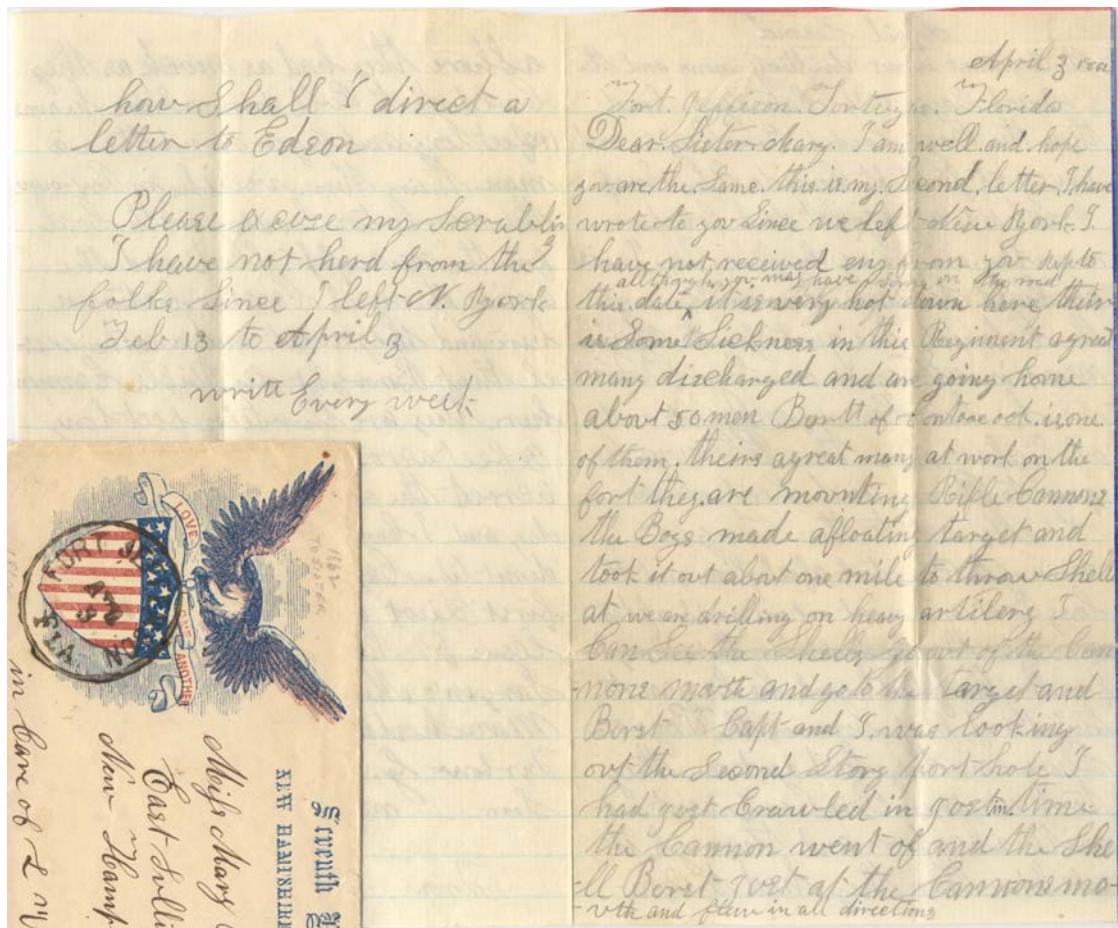 how Shall I direct a
letter to Edson
Please excuse my Scrablin
I have not herd from the
folks Since I left N. York
Feb 13 to April 3
write Every week
April 3
Fort. Jefferson. Tortugas. Florida
Dear. Sister. Mary. I am well and. hope
you are the Same. this is my Second. letter. I have
wrote to you Since we left New York. I
have not received eny from you up to
allthough you may have some on the road
this date, it is very hot down here their
is Some Sickness in this Regiment agreat
many discharged and are going home
about 50 men of is one.
of them. theirs agreat many at work on the
fort they are mounting Rifle Cannons
the Boys made afloating target and
took it out about one mile to throw Shells
at we are drilling on heavy artilery I
Can See the Shells go out of the Can-
nons mouth and go to the target and
Borst Capt and I. was looking
out the Second Story port hole I
had gost Crawled in gost in. time
the Cannon went of and the She
ll Borst gost at the Cannons mo-
-uth and flew in all directions
LOVE ONE ANOTHER
FORT JEFFERSON
APR 3
FLA.
1862
Seventh
NEW HAMPSHIRE
Miss Mary
East
New Hamp
in Care of L